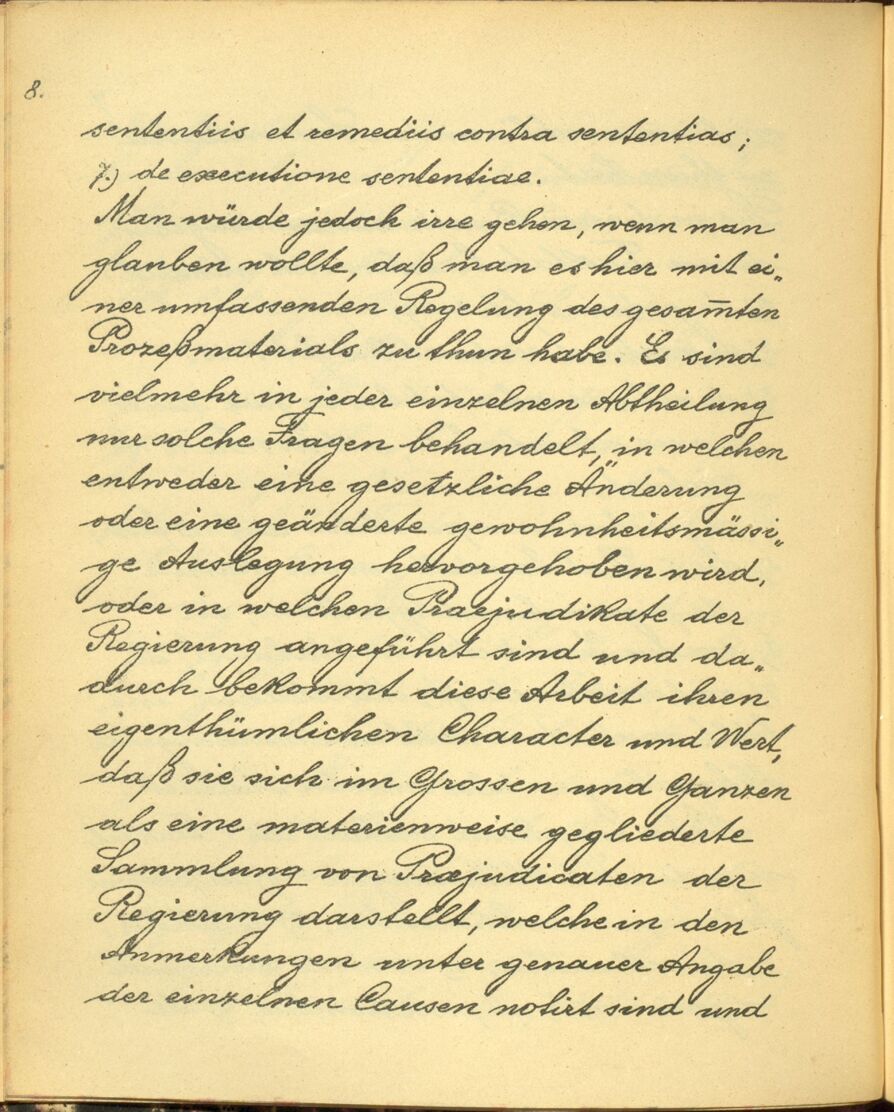 8.
sententiis et remediis contra sententias;
7.) de executione sententiae.
Man würde jedoch irre gehen, wenn man
glauben wollte, daß man es hier mit ei„
ner umfassenden Regelung des gesam̅ten
Prozeßmaterials zu thun habe. Es sind
vielmehr in jeder einzelnen Abtheilung
nur solche Fragen behandelt, in welchen
entweder eine gesetzliche Änderung
oder eine geänderte gewohnheitsmässi„
ge Auslegung hervorgehoben wird,
oder in welchen Praejudikate der
Regierung angeführt sind und da„
durch bekommt diese Arbeit ihren
eigenthümlichen Character und Wert,
daß sie sich im Grossen und Ganzen
als eine materienweise gegliederte
Sammlung von Præjudicaten der
Regierung darstellt, welche in den
Anmerkungen unter genauer Angabe
der einzelnen Causen notirt sind und